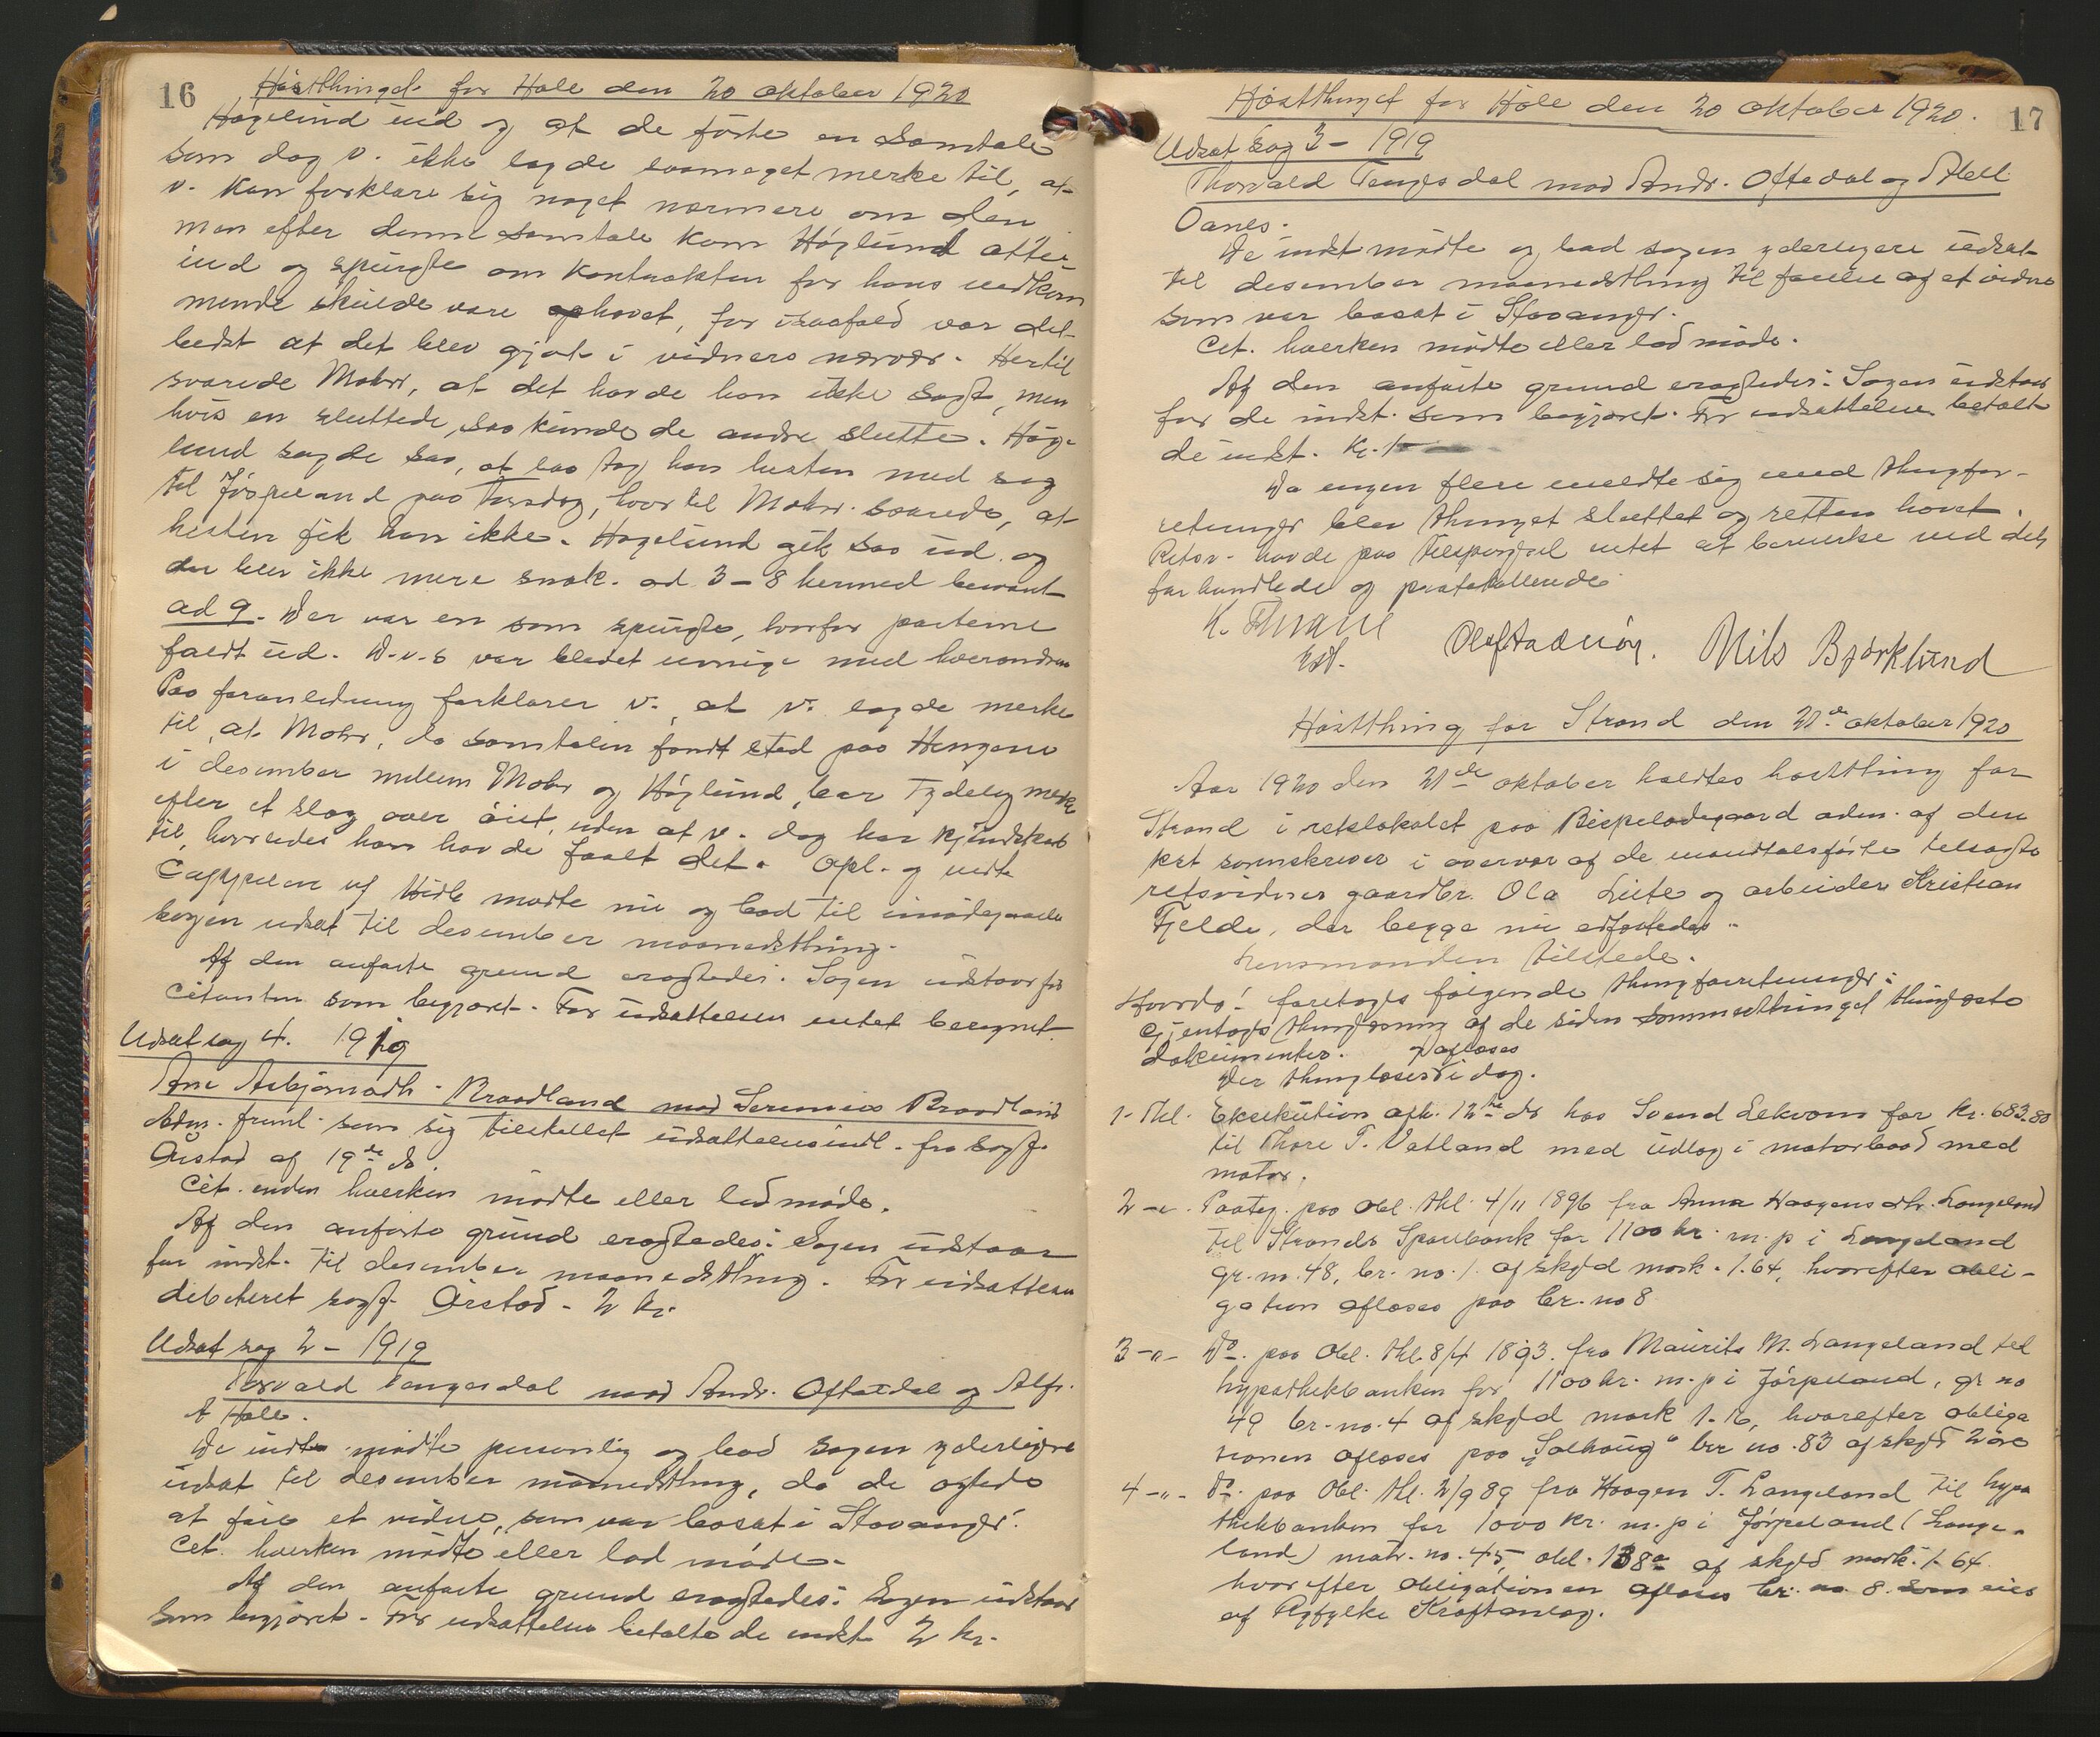 16
Høstthinget for Høle den 20 oktober 1920
Høgelund ind og at de førte en samtale
som dog v. ikke lagde saameget merke til, at
v. kan forklare sig noget nærmere om den
men efter denne samtale kom Høglund atter
ind og spurgte om kontrakten for hans vedkom
mende skulde være ophævet, for isaafald var det
bedst at det blev gjort i vidners nærvær. Hertil
svarede Mohr, at det havde han ikke sagt, men
hvis en sluttede, saa kunde de andre slutte. Høg-
lund sagde saa, at saa tog han hesten med sig
til Jørpeland paa Torsdag, hvortil Mohr svarede, at
hesten fik han ikke. Høgelund gik saa ud og
der blev ikke mere snak. ad 3-8 hermed besvart
ad 9. Der var en som spurgte, hvorfor parterne
faldt ud. D.v.s var blevet uenige med hverandre
Paa foranledning forklarer v., at v. lagde merke
til, at Mohr, da samtalen fandt sted paa Hengene
i desember mellem Mohr og Høglund, bar tydelig merke
efter et slag over øiet, uden at v. dog har kjendskab
til, hvorledes han havde faat det. Opl. og vedt.
Cappelen v/ Hidle mødte nu og bad til imødegaaelse
sagen udsat til desember maanedsthing.
Af den anførte grund eragtedes: Sagen udstaar for
Citanten som begjæret. For udsættelsen intet beregnet.
Udsat sag 4. 1919
Ane Asbjørnsdtr. Braadland mod Serenius Braadland
Adm. freml. som sig tilstillet udsættelsesindl. fra sagf.
Ørstad af 19de ds.
Cit. enden hverken mødte eller lod møde.
Af den anførte grund eragtedes: Sagen udstaar
for indst. til desember maanedsthing. For udsættelsen
debiteret sagf. Ørstad - 2 kr.
Udsat sag 2 - 1919
Torvald Tengesdal mod Andr. Oftedal og Alfr.
A Høle.
De indst. mødte personlig og bad sagen yderligere
udsat til desember maanedsthing, da de agtede
at føre et vidne, som var bosat i Stavanger.
Cit. hverken mødte eller lod møde.
Af den anførte grund eragtedes: Sagen udstaar
som begjæret. For udsættelse betalte de indst. 2 kr.
Høstthinget for Høle den 20 oktober 1920.
17
Udsat sag 3 - 1919
Thorvald Tengesdal mod Andr. Oftedal og
Oanes.
De indst mødte og bad sagen yderligere udsat
til desember maanedsthing til førelse af et vidne
som var bosat i Stavanger.
Cit. hverken mødte eller lod møde.
Af den anførte grund eragtedes: Sagen udstaar
for de indst. som begjæret. For udsættelsen betalte
de indst. Kr.
Da ingen flere meldte sig med thingfor-
retninger blev thinget sluttet og retten hævet.
Retsv. havde paa tilspørgsel intet at bemerke ved det
forhandlede og protokollerede
K. Thrane
Est.
Nils Bjørklund
Høstthing for Strand den 21de oktober 1920
Aar 1920 den 21de oktober holdtes høstthing for
Strand i retslokalet paa Bispeladegaard adm. af den
kst sorenskriver i overvær af de mandtalsførte tilsagte
retsvidner gaardbr. Ola Liete og arbeider Kristian
Fjelde, der begge nu edfæstedes.
Lensmanden tilstede.
Hvorda! foretoges følgende thingforretninger:
Gjentoges thinglæsning af de siden sommerthinget thinglæste
dokumenter.
og aflæses
Der thinglæses i dag.
1. Thl. Eksekution afh. 12te ds hos Svend Lekvam for kr. 683.80
til Thore T. Vatland med udlæg i motorbaad med
motor.
2 -"- Paateg. paa obl. thl. 4/11 1896 fra Anna Haagensdtr. Langeland
til Strands Sparebank for 1100 kr. m. p i Langeland
gr. no. 48, br. no. 1 af skyld mark. 1.64, hvorefter obli-
gation aflæses paa br. no 8
3 -"- Do. paa obl. thl. 8/4 1893 fra Maurits M. Langeland til
hypothekbanken for 1100 kr. m. p i Jørpeland, gr no
49 br. no. 4 af skyld mark 1.16, hvorefter obliga
tionen aflæses paa "Solhaug" br. no. 83 af skyld 2 øre
4 -"- Do. paa obl. thl. 2/9 89 fra Haagen T. Langeland til hypo
thekbanken for 1000 kr. m. p i Jørpeland (Lange-
land) matr. no. 45, obl. 138a af skyld mark. 1.64
hvorefter obligationen aflæses br. no 8. som eies
af Ryfylke Kraftanlæg.